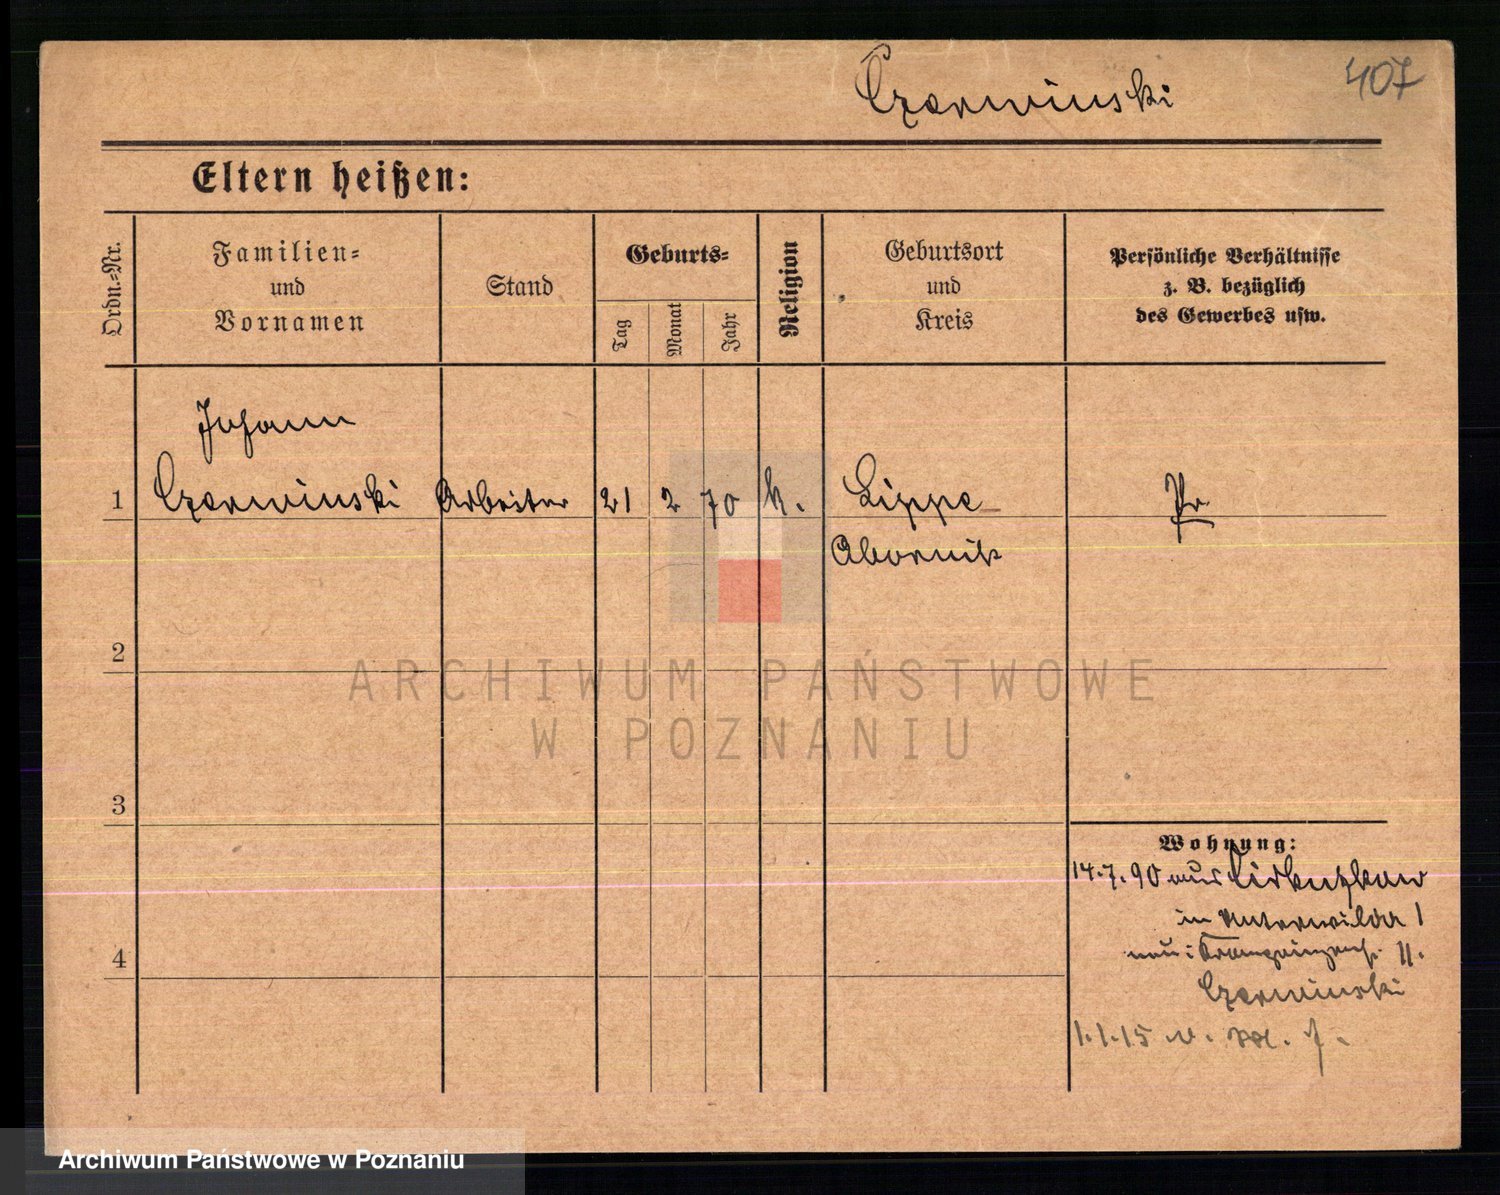 Czerwinski
407
Eltern heißen:
Ordn.-Nr.
Familien-
und
Vornamen
Stand
Geburts-
Tag
Monat
Jahr
Religion
Geburtsort
und
Kreis
Persönliche Verhältnisse
z. B. bezüglich
des Gewerbes usw.
Johann
1 Czerwinski Arbeiter 21 2 70 k. Lippe Pr
Obornik
2
ARCHIWUM PAŃSTWOWE
W POZNANIU
3
Wohnung:
14.7.90 aus
in Unterwilda 1
neu: Kronprinzenst. 11.
4
Czerwinski
1.1.15 v.
Archiwum Państwowe w Poznaniu